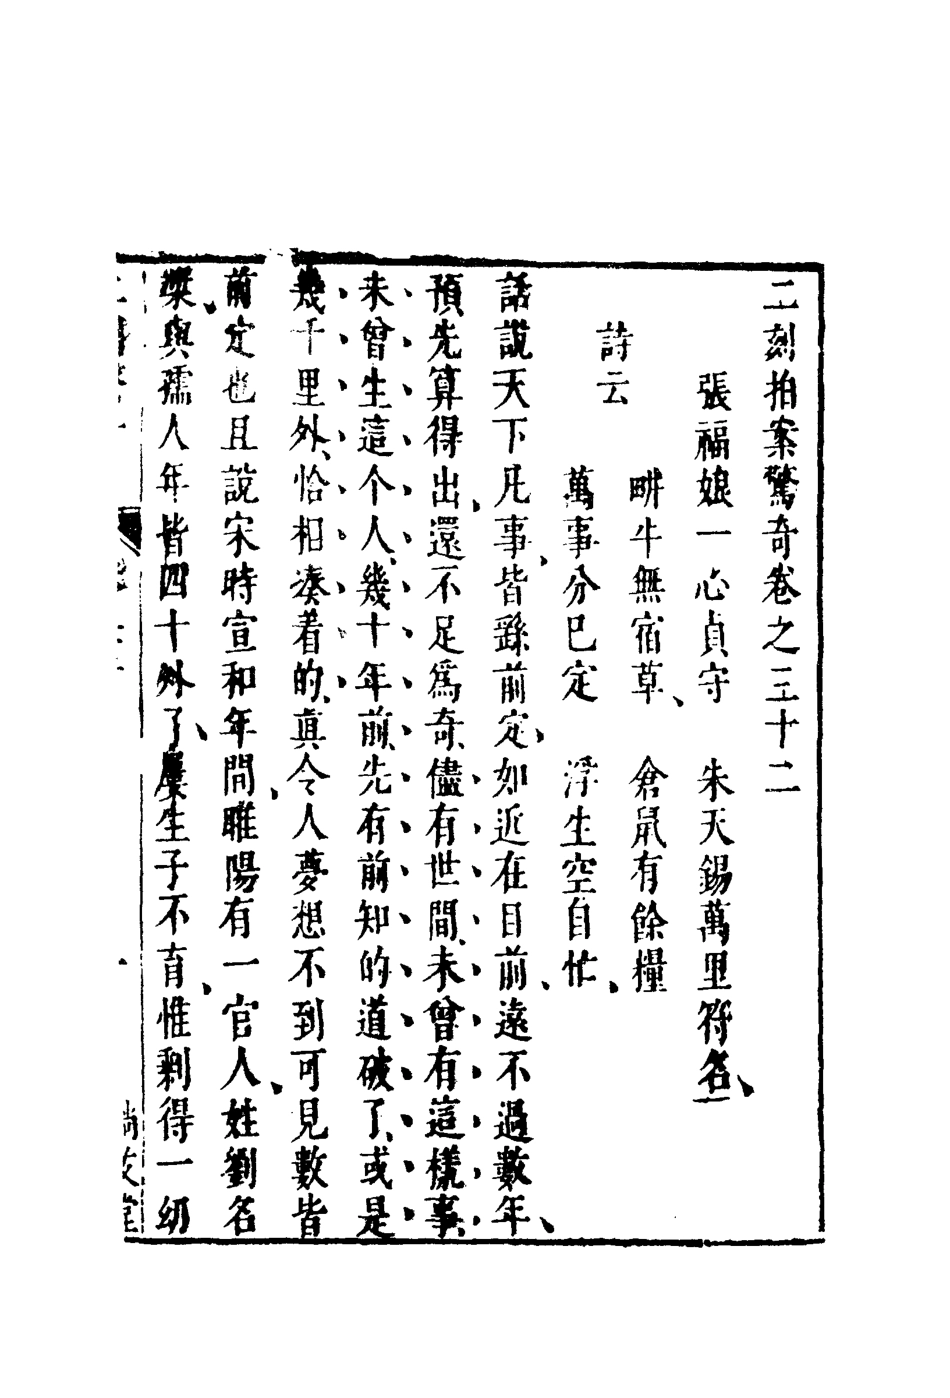 二刻拍案驚奇卷之三十二
張福娘一心貞守　朱天錫萬里符名
詩云
畊牛無宿草、　倉鼠有餘糧
萬事分已定　浮生空自忙、
話說天下凡事、皆繇前定、如近在目前、遠不過數年、
預先算得出、還不足爲奇、儘有世間、未曾有這樣事、
未曾生這个人、幾十年前、先有前知的道破了、或是
幾千里外、恰相凑着的、真令人夢想不到可見數皆
前定也且說宋時宣和年間、睢陽有一官人、姓劉名
槩、與孺人年皆四十外了、屢生子不育、惟剩得一幼
尚友堂